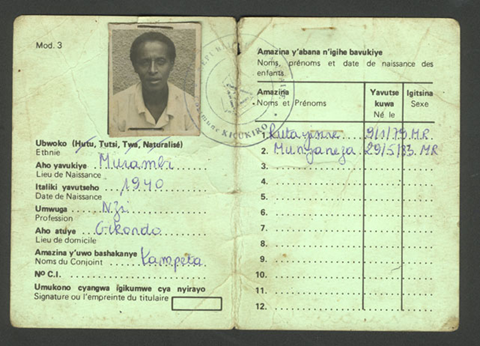 Mod. 3
Ubwoko (Hutu, Tutsi, Twa, Naturalisé)
Etbnie
Aho yavukiye Murambi
Lieu de Naissance
Italiki yavutseho 1940
Date de Naissance
Umwuga
Profession
Aho atuye Gikondo
Lieu de domicile
Amazina y'uwo bashakanye Kampeta
Noms du Conjoint
Nº C.I.
Umukono cyangwa igikumwe cya nyirayo
Signature ou l'empreinte du titulaire
KICUKIRO
Amazina y'abana n'igihe bavukiye
Noms, prénoms et date de naissance des
enfants.
Amazina Yavutse Igitsina
Noms et Prénoms kuwa Sexe
Né le
1. 9/1/79 M.R.
2. Munyaneza 29/5/83 MR
3.
4.
5.
6.
7.
8.
9.
10.
11.
12.